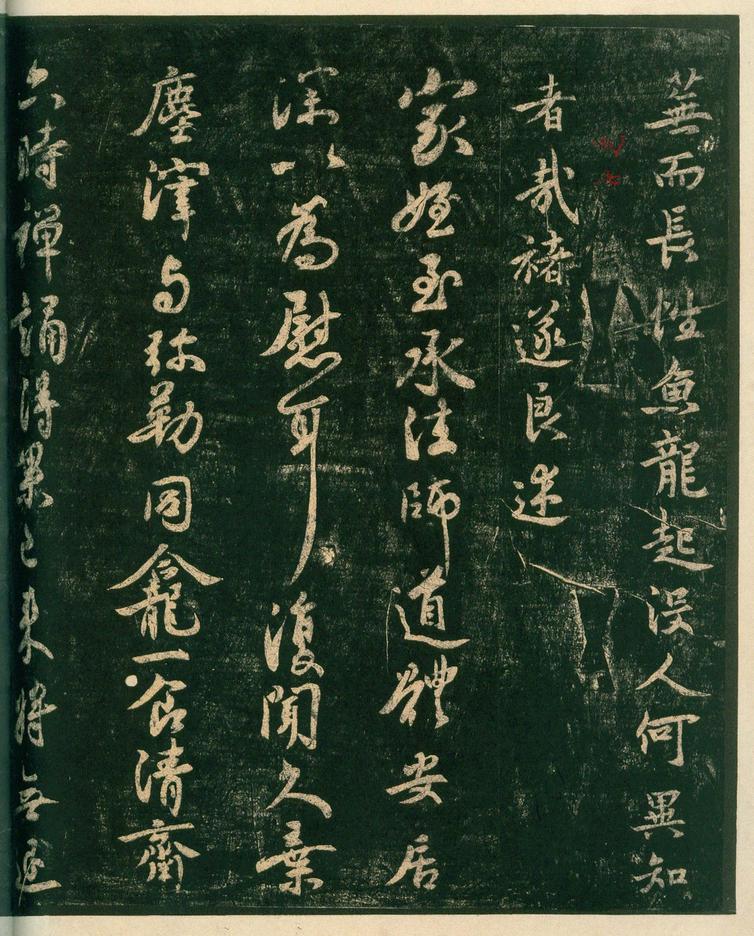 蕪而長性魚龍起没人何異知
者哉褚遂良述
家姪至承法師道體安居
深以為慰耳復聞久棄
塵滓与弥勒同龕一食清齋
六時禪誦得果已来将無退